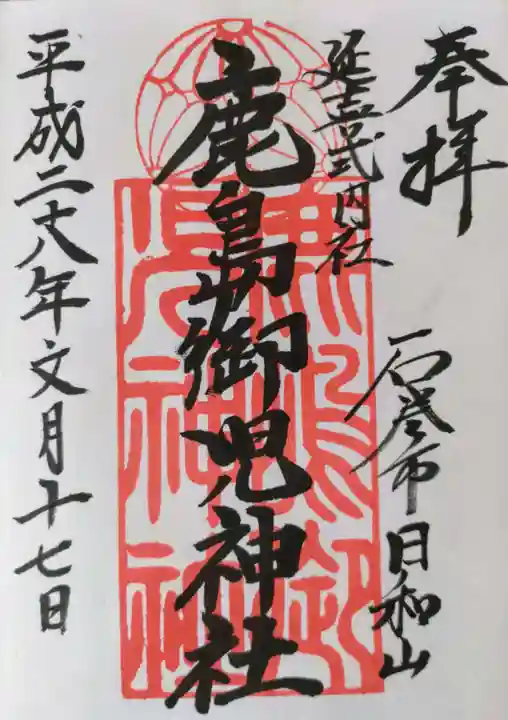 奉拝
石巻市日和山
延喜式内社
鹿島御児神社
平成二十八年文月十七日
鹿島御
児神社